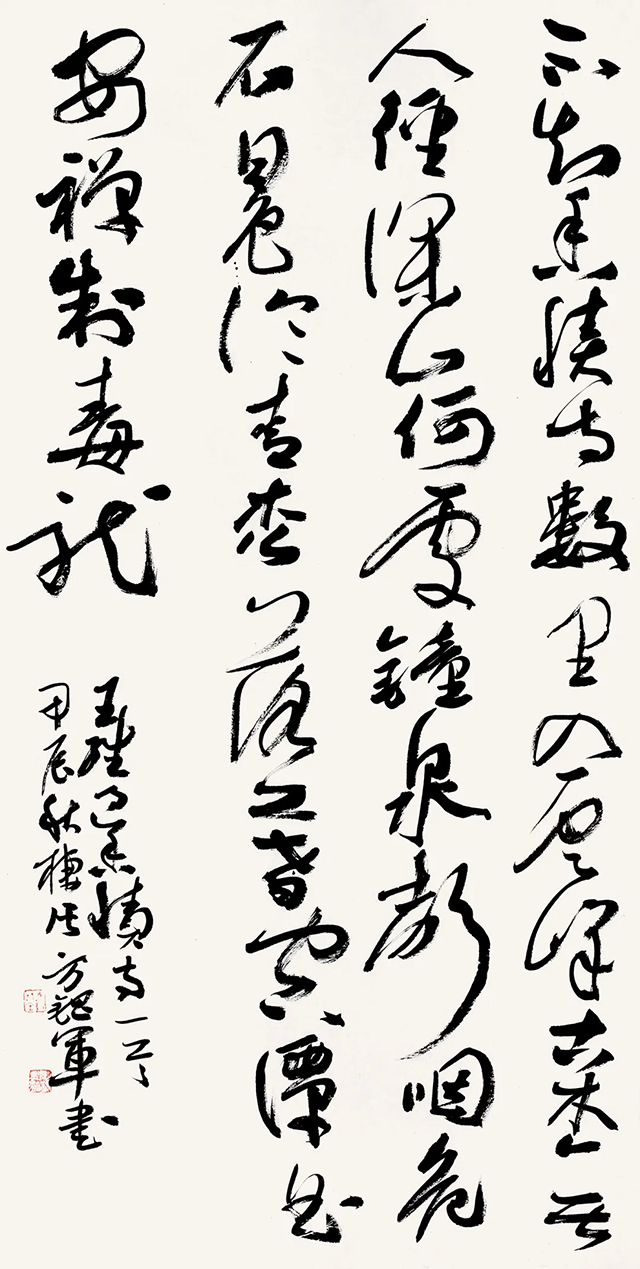 不知香積寺數里入雲峰古木无
人徑深山何處鐘泉聲咽危
石日色冷青松薄暮空潭曲
安禪制毒龍
王維過香積寺一首
甲辰秋方軍书